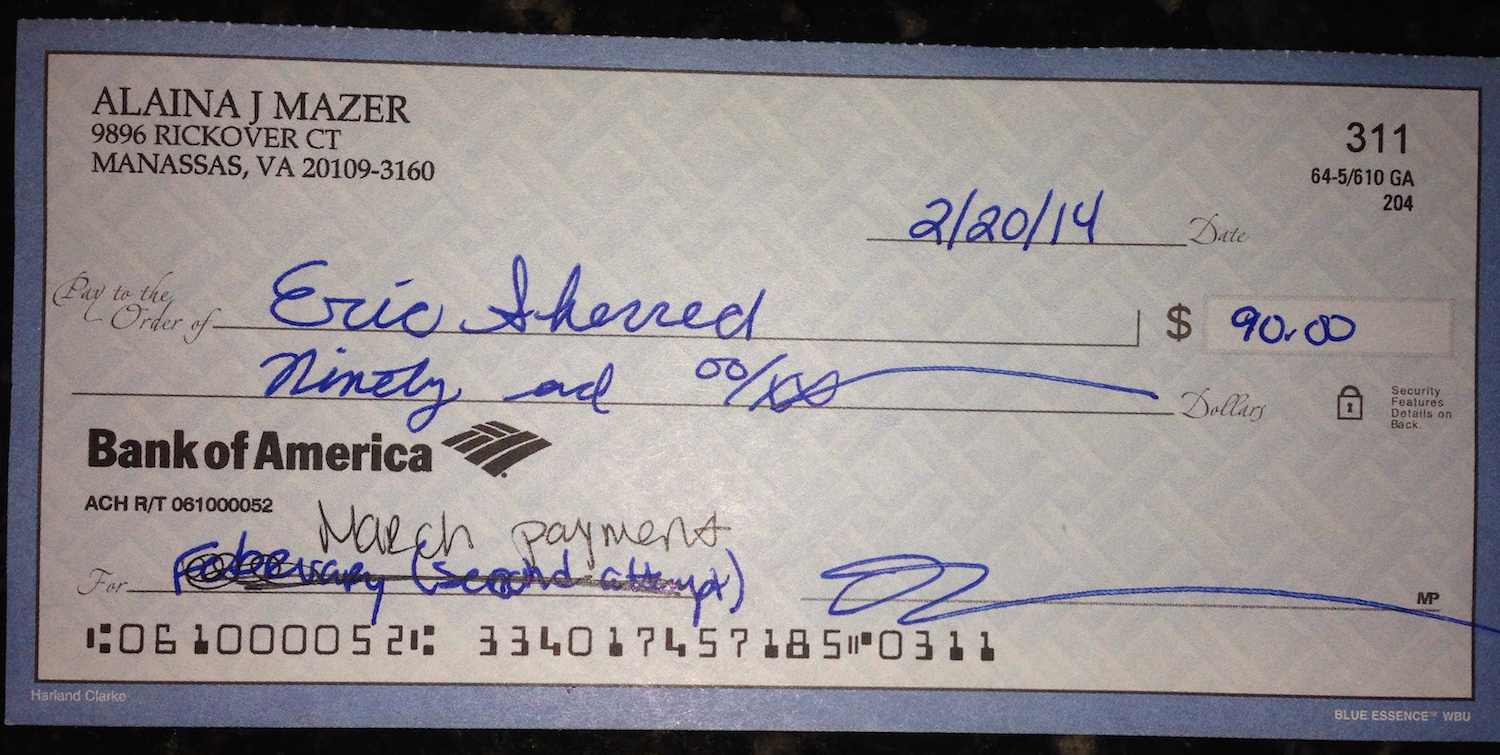 ALAINA J MAZER
9896 RICKOVER CT
MANASSAS, VA 20109-3160
311
64-5/610 GA
204
2/20/14 Date
Pay to the
Order of Eric Sherred $ 90.00
Ninety and 00/xx Dollars
Security
Features
Details on
Back.
Bank of America
ACH R/T 061000052
March payment
For February (second attempt)
MP
⑆061000052⑆ 334017457185⑈0311
Harland Clarke
BLUE ESSENCE™ WBU